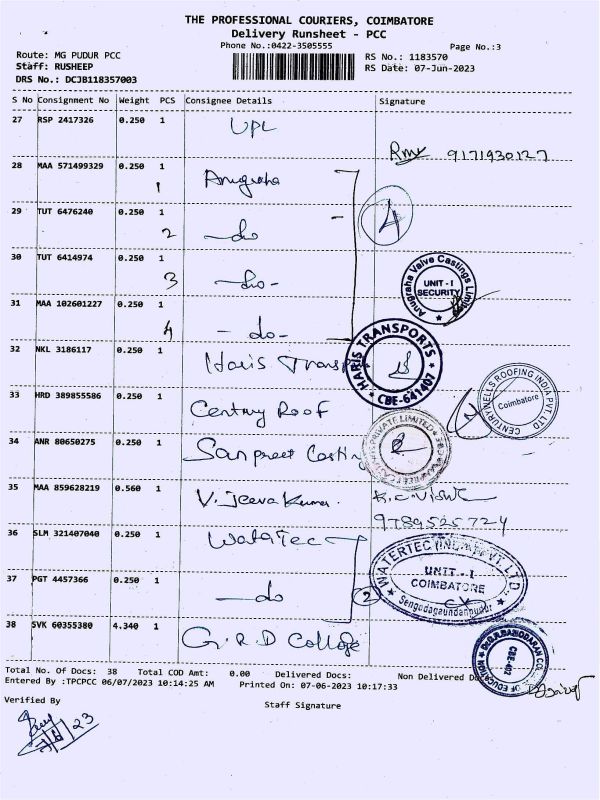 THE PROFESSIONAL COURIERS, COIMBATORE
Delivery Runsheet - PCC
Phone No.:0422-3505555
Page No.:3
Route: MG PUDUR PCC
Staff: RUSHEEP
DRS No.: DCJB118357003
RS No.: 1183570
RS Date: 07-Jun-2023
S No Consignment No Weight PCS Consignee Details Signature
27 RSP 2417326 0.250 1 UPL
9171930127
28 MAA 571499329 0.250 1 Anugraha
1
4
29 TUT 6476240 0.250 1 -do
2
30 TUT 6414974 0.250 1 -do-
3
Anugraha Valve Castings Limited
UNIT - I
SECURITY
31 MAA 102601227 0.250 1 -do-
4
32 NKL 3186117 0.250 1 Haris Transp
HARIS TRANSPORTS
CBE-641407
33 HRD 389855586 0.250 1 Century Roof
CENTURYWELLS ROOFING INDIA PVT. LTD
Coimbatore
34 ANR 80650275 0.250 1 Sanpreet Casting
PRIVATE LIMITED
35 MAA 859628219 0.560 1 V. Jeeva Kumar.
9789525724
36 SLM 321407040 0.250 1 WataTec
WATERTEC (INDIA) PVT. LTD.
UNIT - I
COIMBATORE
Sengodagaundanpudur
37 PGT 4457366 0.250 1 -do
2
38 SVK 60355380 4.340 1 G. R. D College
OF EDUCATION
Total No. Of Docs: 38 Total COD Amt: 0.00 Delivered Docs: Non Delivered
Entered By :TPCPCC 06/07/2023 10:14:25 AM Printed On: 07-06-2023 10:17:33
Verified By
Staff Signature